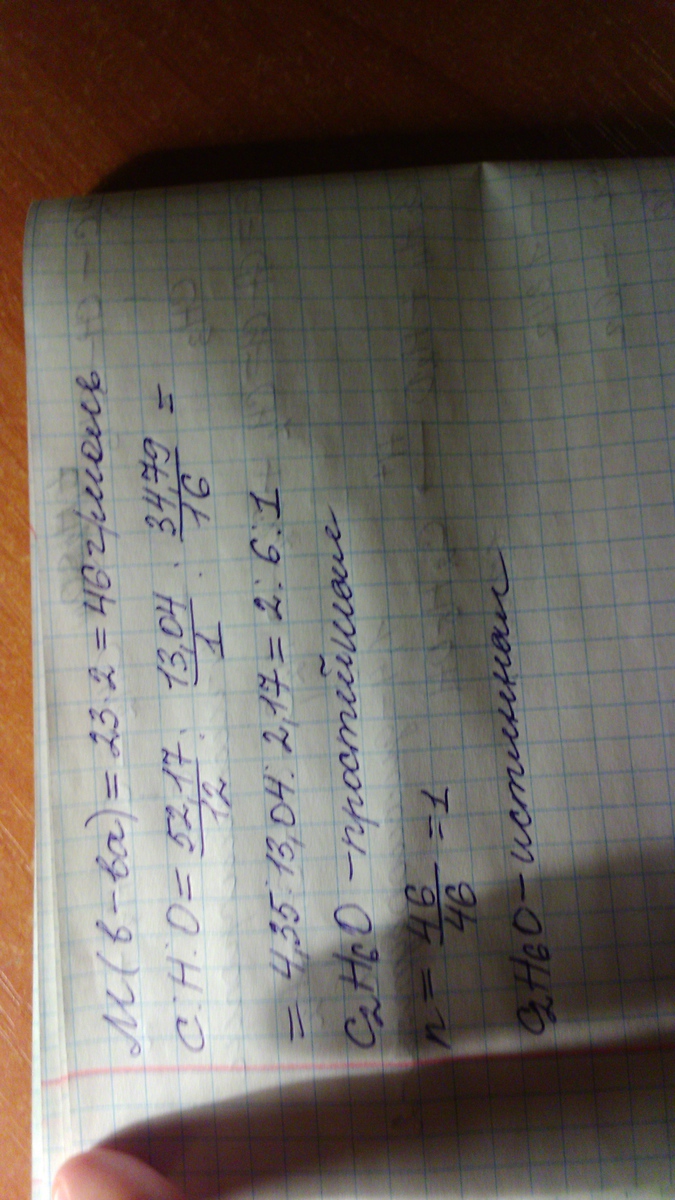 M(в-ва) = 23·2 = 46 г/моль
C:H:O = 52,17/12 : 13,04/1 : 34,79/16 =
= 4,35:13,04:2,17 = 2:6:1
C₂H₆O - простейшая
n = 46/46 = 1
C₂H₆O - истинная